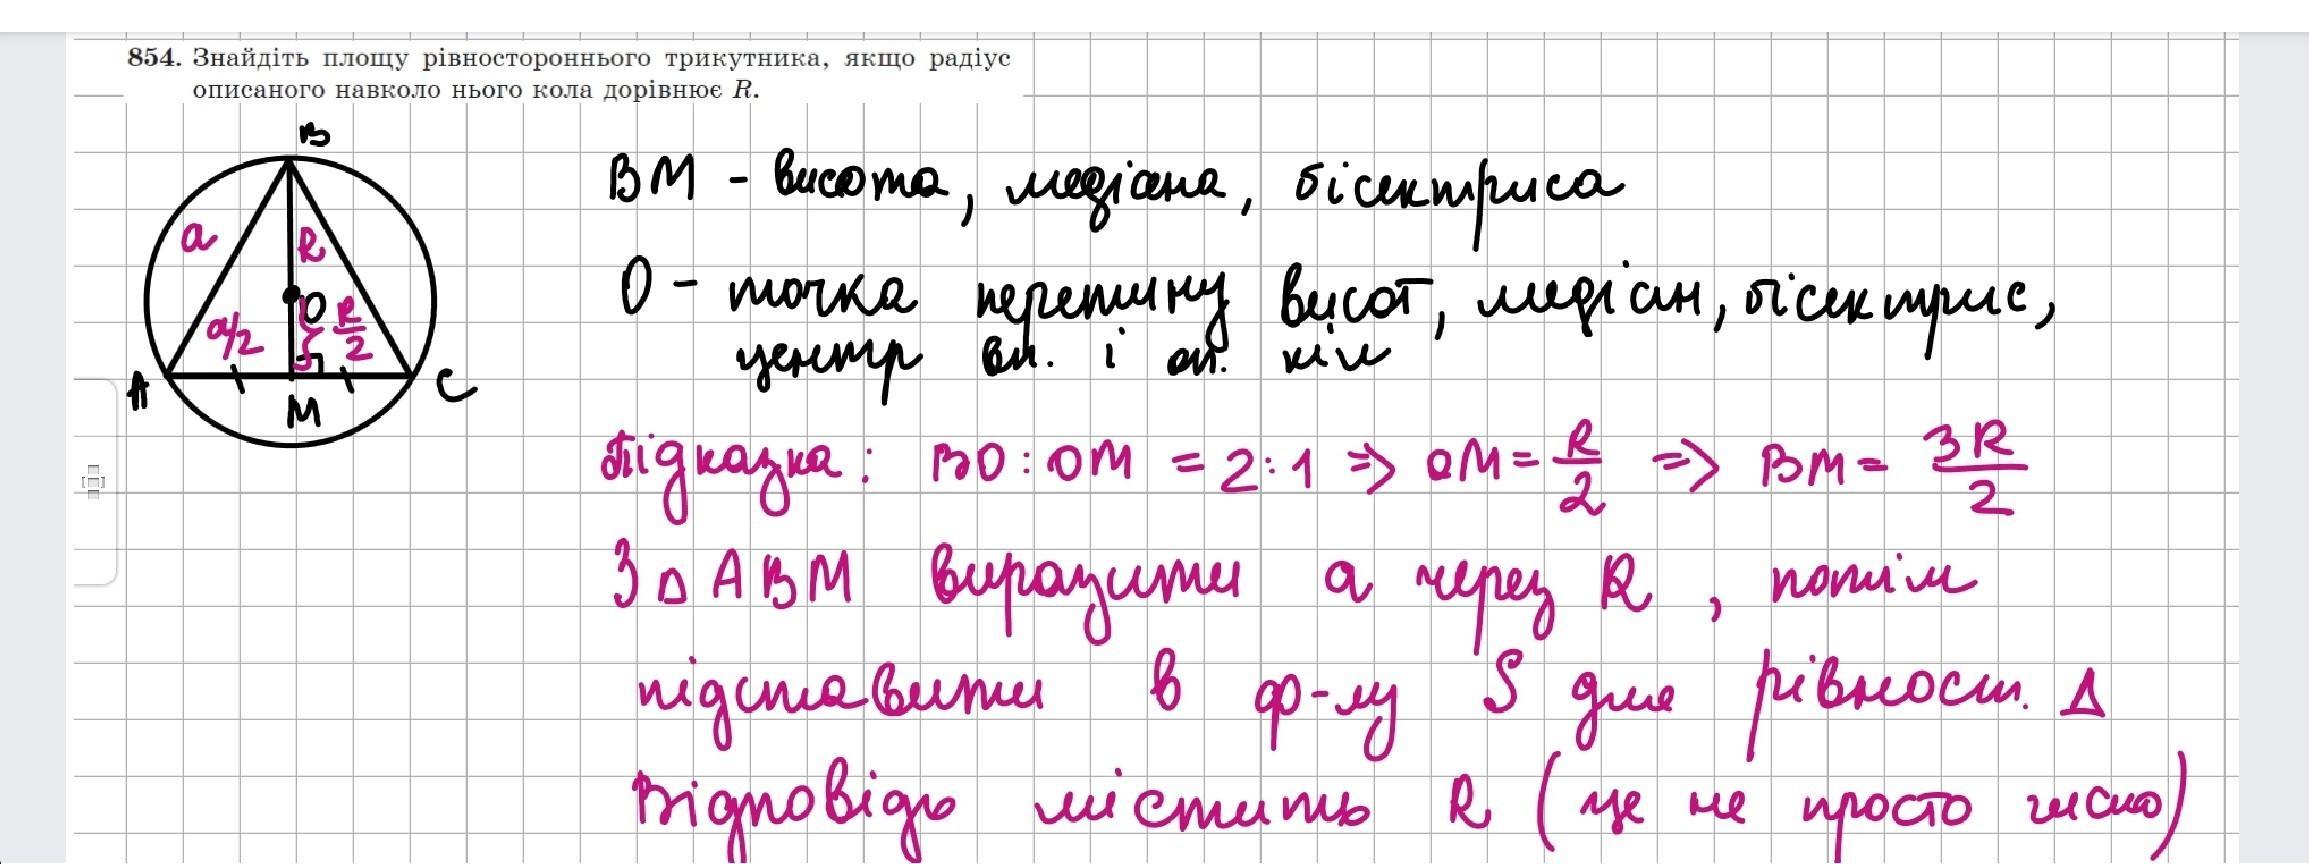 854. Знайдіть площу рівностороннього трикутника, якщо радіус
описаного навколо нього кола дорівнює R.
B
a
R
O
a/2
R/2
A
M
C
BM - висота, медіана, бісектриса
O - точка перетину висот, медіан, бісектрис,
центр вп. і оп. кіл
Підказка: BO : OM = 2 : 1 => OM = R/2 => BM = 3R/2
З Δ ABM виразити a через R, потім
підставити в ф-лу S для рівност. Δ
Відповідь містить R (це не просто число)